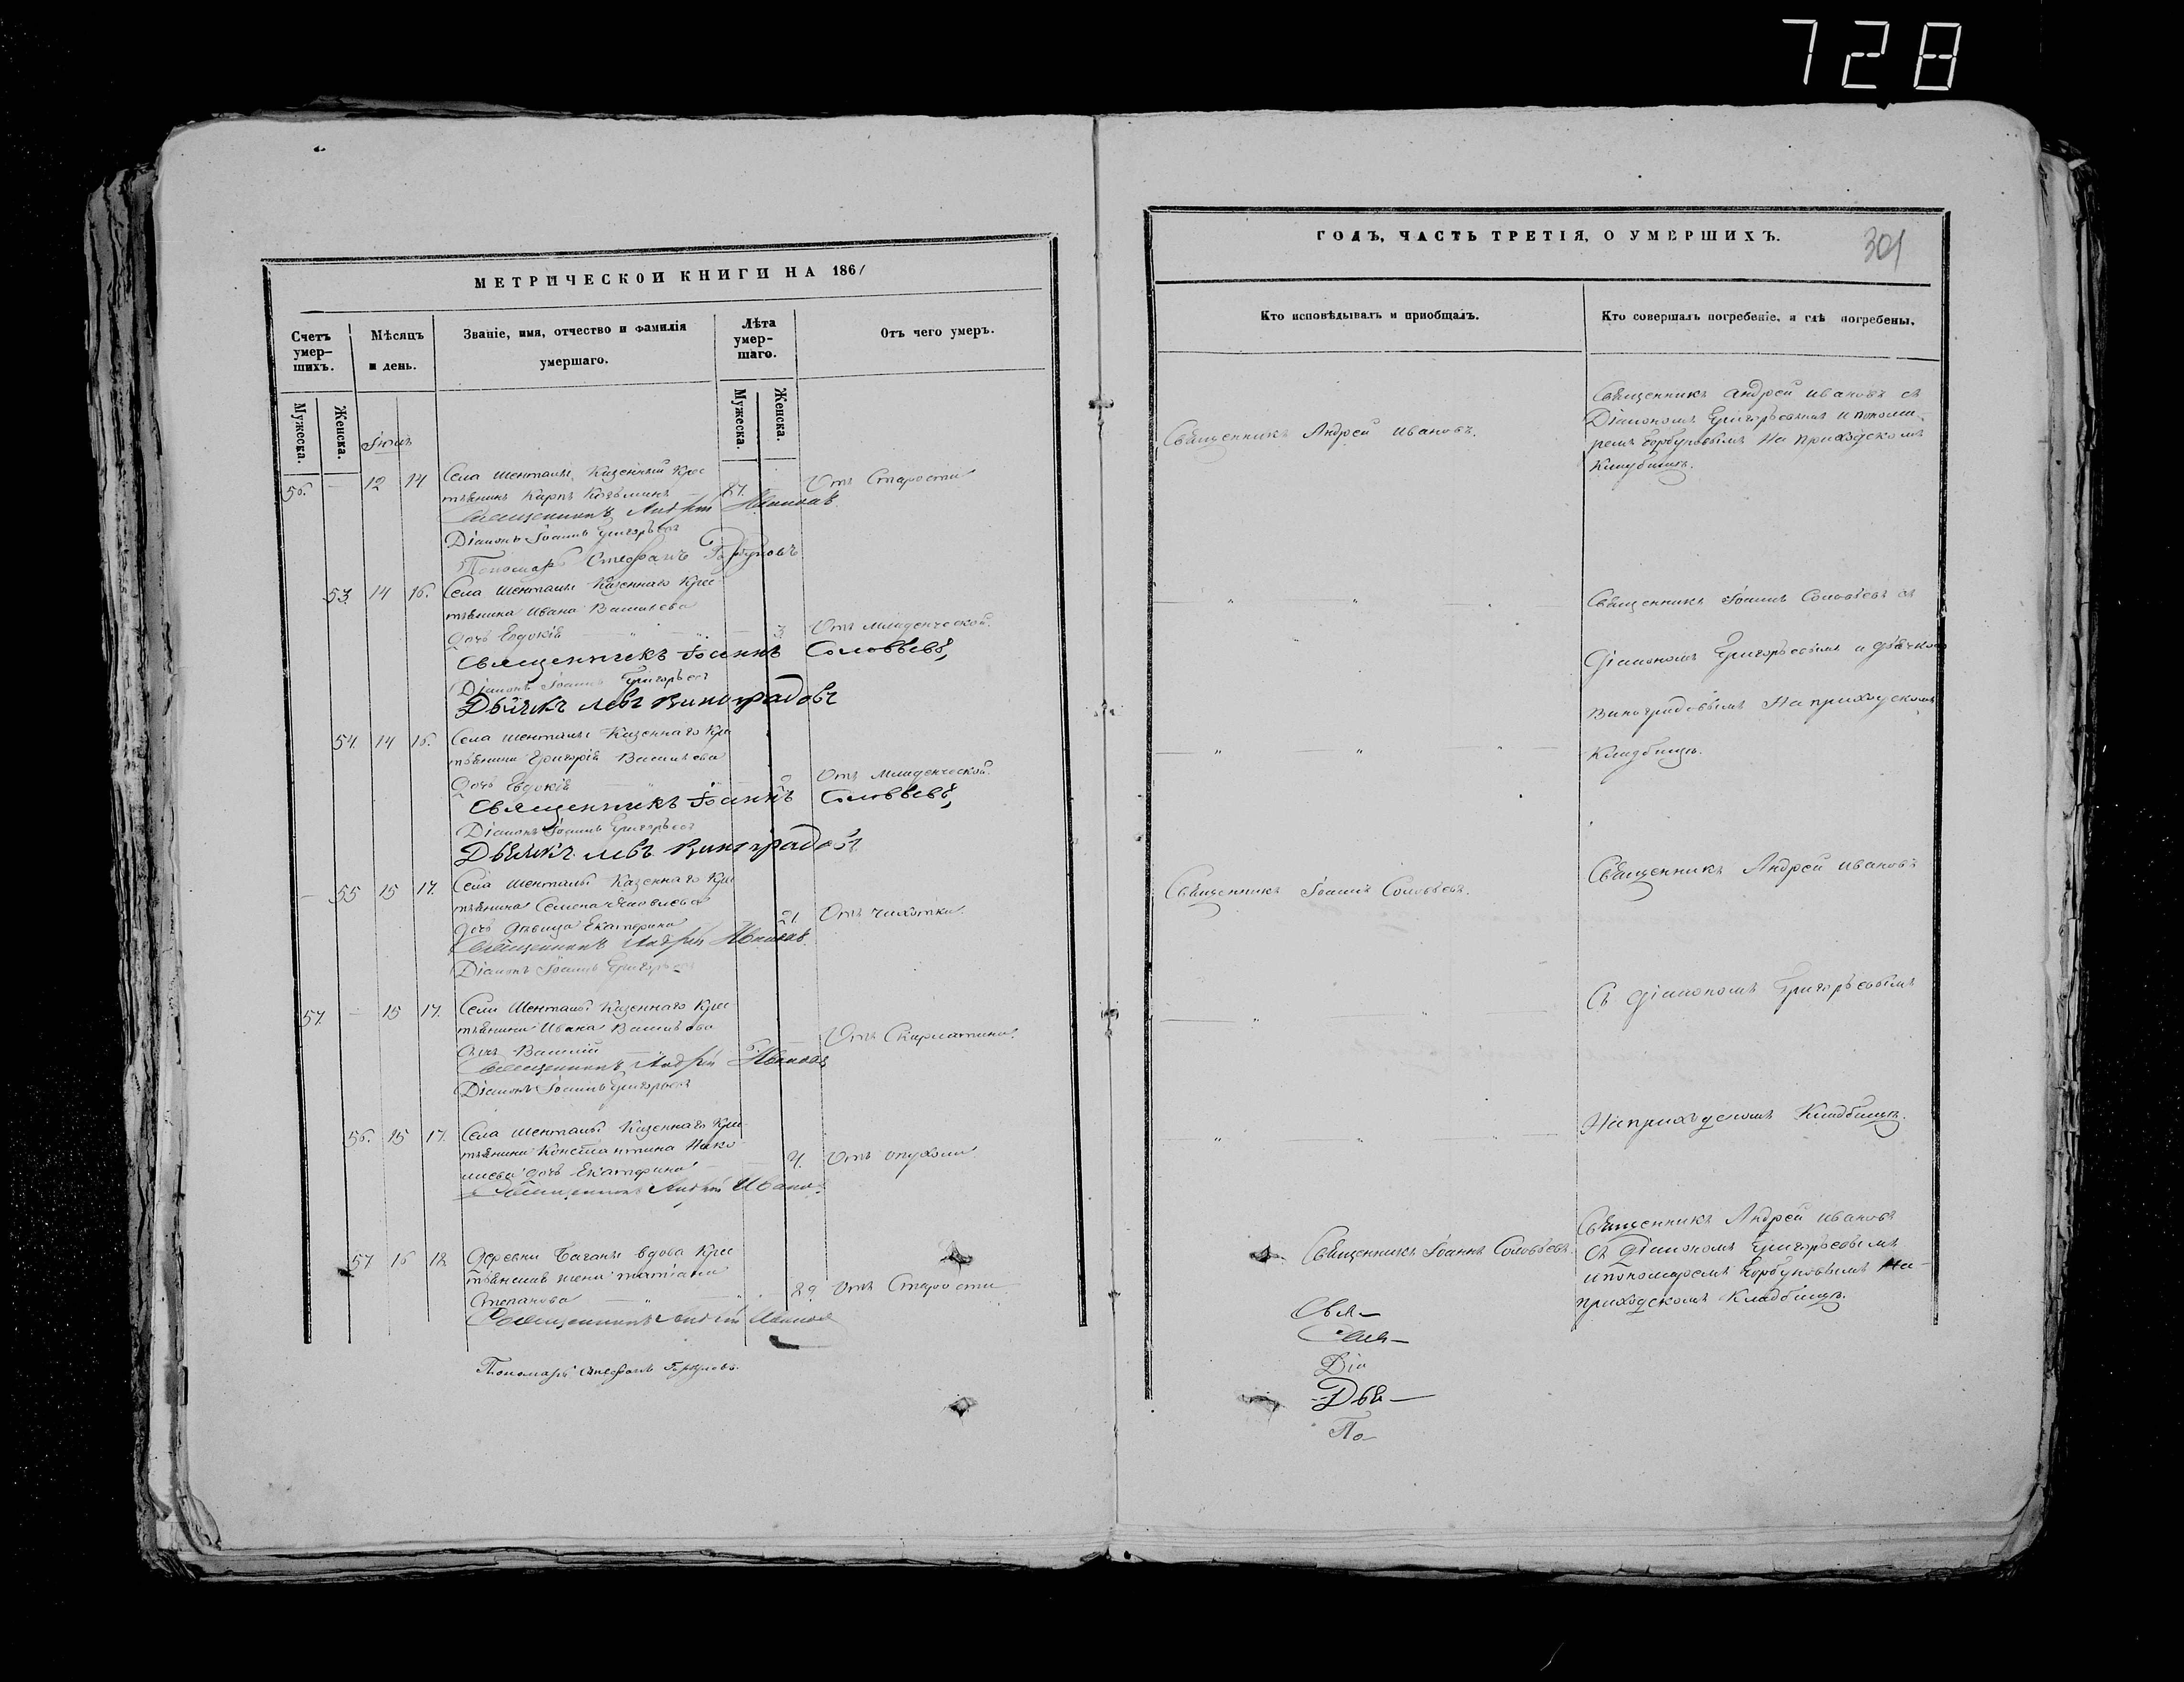 728
МЕТРИЧЕСКОЙ КНИГИ НА 1861
Счетъ умер-шихъ.
Мѣсяцъ и день.
Званіе, имя, отчество и фамилія умершаго.
Лѣта умер-шаго.
Отъ чего умеръ.
Мужеска.
Женска.
Мужеска.
Женска.
56. — 12 14 Села Шенталы Казенный Крес
тьянинъ Карпъ Козьминъ 87. Отъ Старости
Священникъ Андрей Ивановъ
Діаконъ Іоаннъ Григорьевъ
Пономарь Стефанъ Горбуновъ
53. 14 16. Села Шенталы Казеннаго Крес
тьянина Ивана Васильева
дочь Евдокія 3 Отъ Младенческой.
Священникъ Іоаннъ Соловьевъ,
Діаконъ Іоаннъ Григорьевъ
Дьячекъ Левъ Виноградовъ
54. 14 16. Села Шенталы Казеннаго Кре
тьянина Григорія Васильева
дочь Евдокія Отъ Младенческой.
Священникъ Іоаннъ Соловьевъ,
Діаконъ Іоаннъ Григорьевъ
Дьячекъ Левъ Виноградовъ
— 55 15 17. Села Шенталы Казеннаго Кре
тьянина Семена Яковлева
дочь дѣвица Екатерина 21. Отъ чахотки.
Священникъ Андрей Ивановъ.
Діаконъ Іоаннъ Григорьевъ
57. — 15 17. Села Шенталы Казеннаго Крес
тьянина Ивана Васильева
сынъ Василій Отъ Скарлатины.
Священникъ Андрей Ивановъ
Діаконъ Іоаннъ Григорьевъ
56. 15 17. Села Шенталы Казеннаго Кре
тьянина Константина
дочь Екатерина Отъ опухоли
Священникъ Андрей Ивановъ
57 16 18 Деревни Баганы вдова Крес
тьянская жена Татіана
Степанова 89 Отъ Старости
Священникъ Андрей Ивановъ
Пономарь Стефанъ Горбуновъ.
ГОДЪ, ЧАСТЬ ТРЕТІЯ, О УМЕРШИХЪ.
301
Кто исповѣдывалъ и пріобщалъ.
Кто совершалъ погребеніе, и гдѣ погребены.
Священникъ Андрей Ивановъ.
Священникъ Андрей Ивановъ съ
Діакономъ Григорьевымъ и понома
ремъ Горбуновымъ На приходскомъ
Кладбищѣ.
Священникъ Іоаннъ Соловьевъ съ
діакономъ Григорьевымъ и дьячкомъ
Виноградовымъ На приходскомъ
Кладбищѣ.
Священникъ Іоаннъ Соловьевъ.
Священникъ Андрей Ивановъ
Съ діакономъ Григорьевымъ
На приходскомъ Кладбищѣ.
Священникъ Іоаннъ Соловьевъ.
Священникъ Андрей Ивановъ
Съ Діакономъ Григорьевымъ
и пономаремъ Горбуновымъ На-
приходскомъ Кладбищѣ.
Свя-
Діа
Дья-
По-